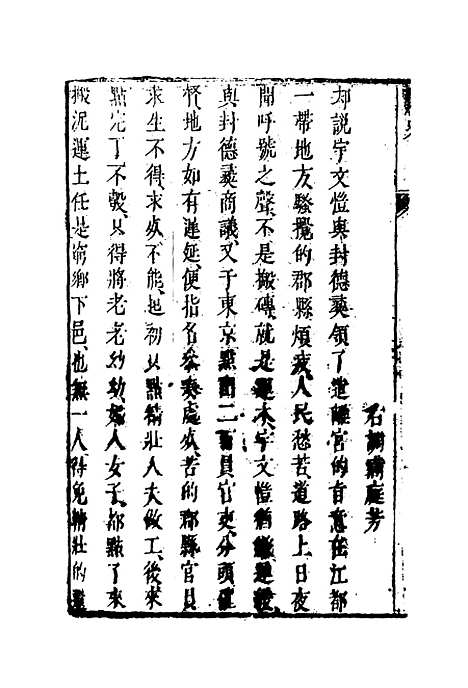 右調滿庭芳
却說宇文愷與封德彝領了造離宮的旨意在江都
一帶地方騷攪的郡縣煩疲人民愁苦道路上日夜
聞呼號之聲不是搬磚就是運木宇文愷猶嫌
與封德彝商議又于東京點面二百員官吏分頭催
督地方如有遲延便指名參奏處死苦的郡縣官員
求生不得求死不能起初只點精壯人夫做工後來
點完了不彀只得將老老幼幼婦人女子都點了來
搬泥運土任是窮鄉下邑也無一人得免精壯的